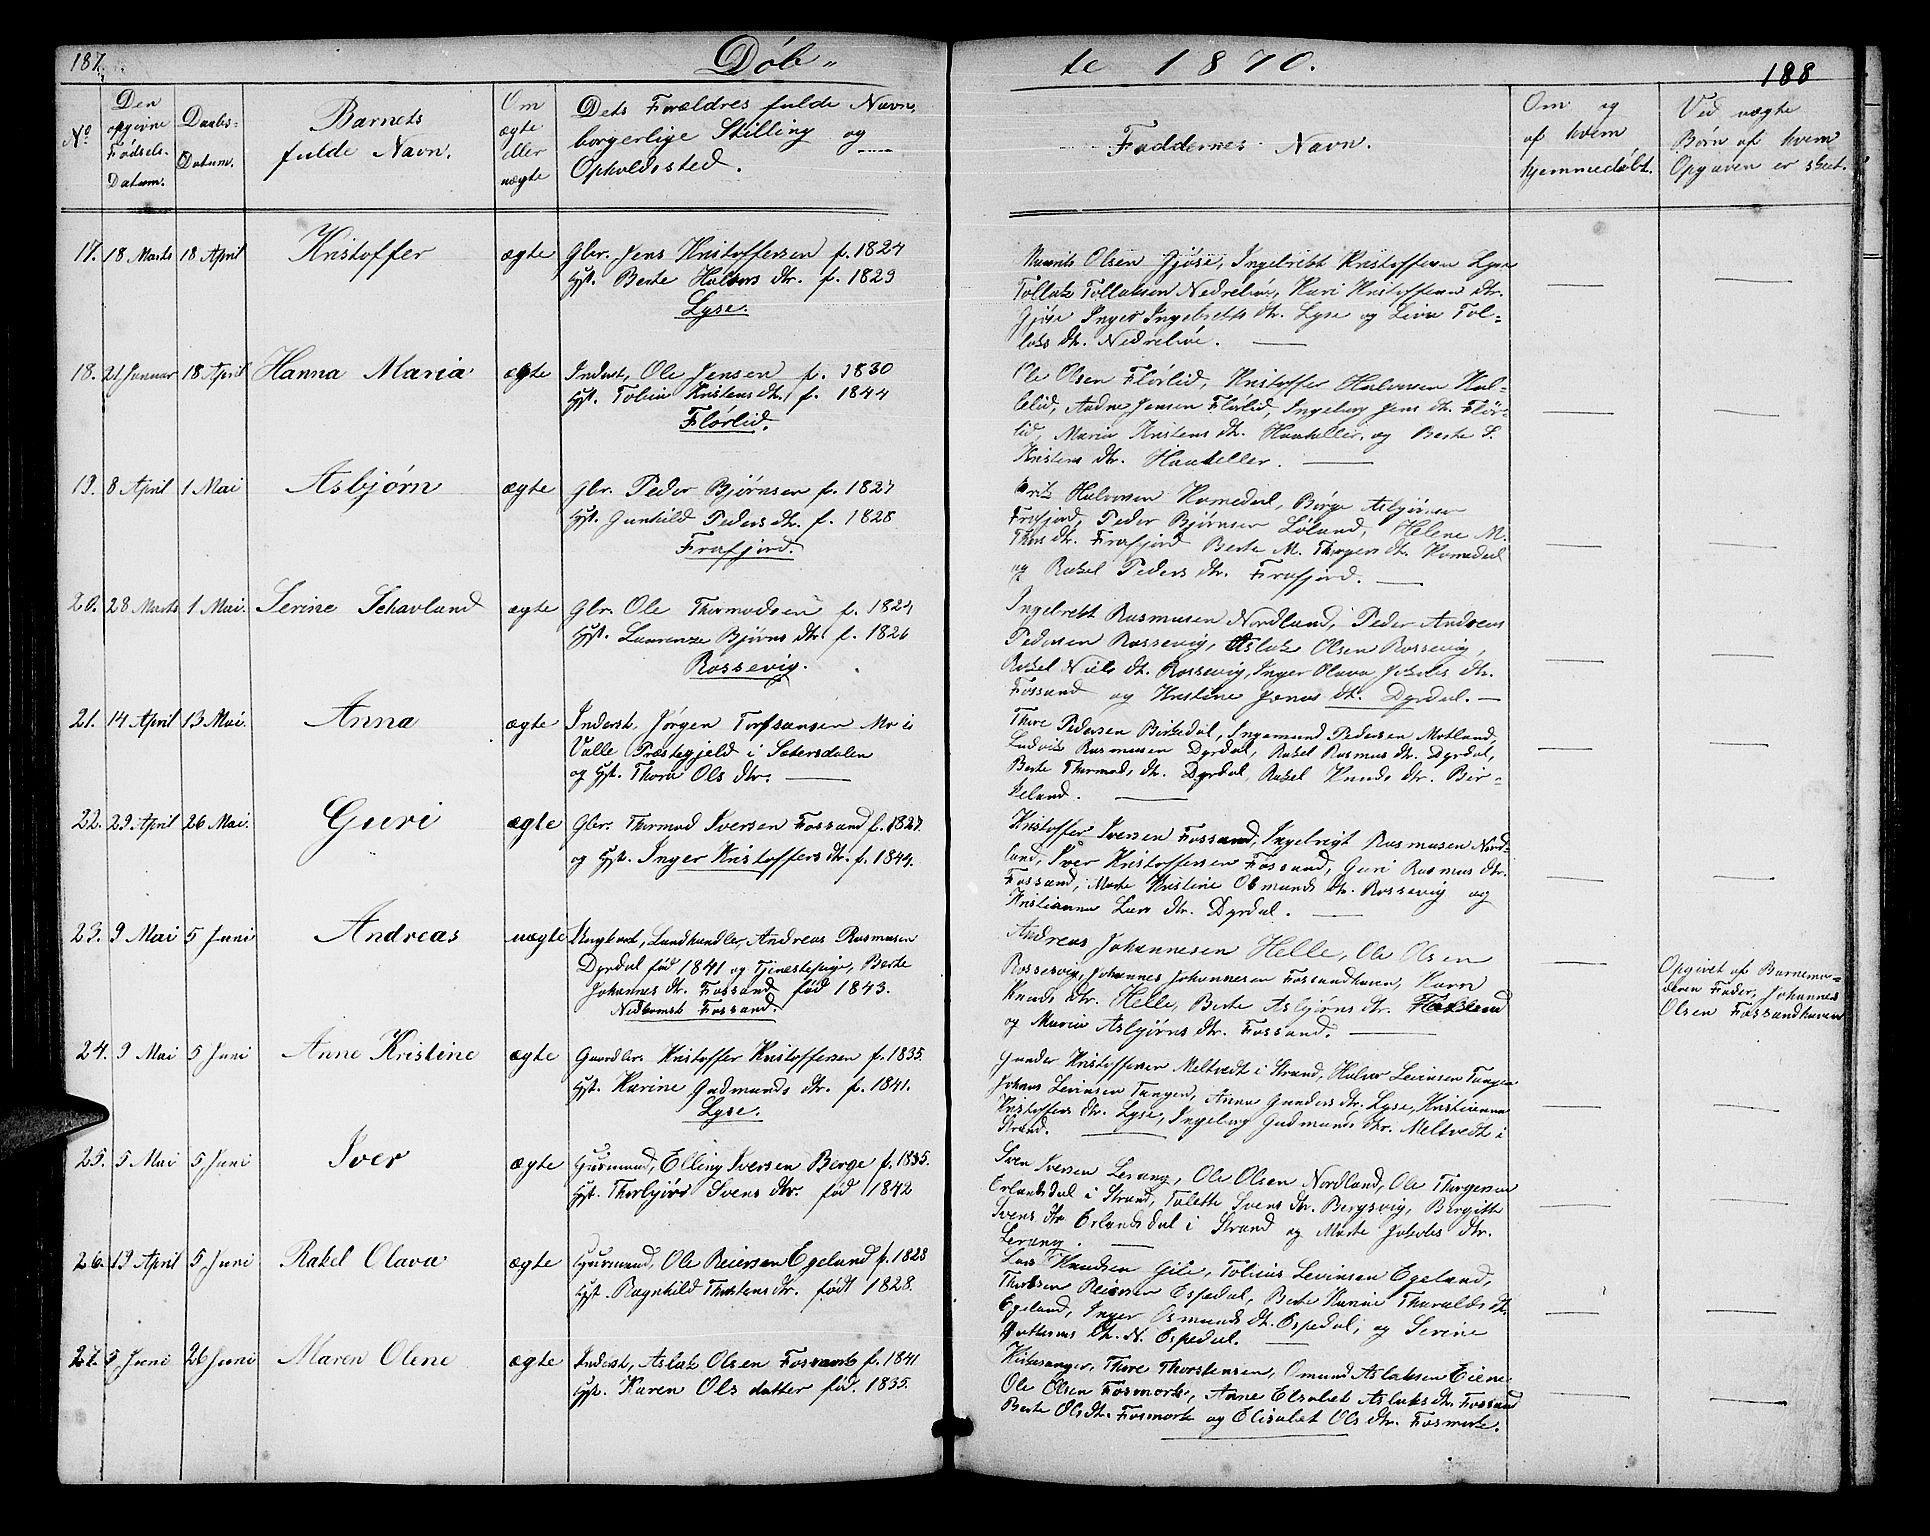 187.
Døb-
te 1870.
188
No
Den opgivne Fødsels-Datum.
Daabs-Datum.
Barnets fulde Navn.
Om ægte eller uægte
Dets Forældres fulde Navn, borgerlige Stilling og Opholdssted.
Faddernes Navn.
Om og af hvem hjemmedøbt.
Ved uægte Børn af hvem Opgaven er skeet.
17. 18 Marts 18 April Kristoffer ægte Gbr. Jens Kristoffersen f. 1824
Hst. Berte Halvors dtr. f. 1829
Lyse.
Olsen Gjøse, Ingebret Kristoffersen Lyse
Tollak Tollaksen Nedrebøe, Kari Kristoffers dtr.
Gjøse Inger Ingebrets dtr. Lyse og Lina Tol-
laks dtr. Nedrebøe.
18. 21 Januar 18 April Hanna Maria ægte Inderst, Ole Jensen f. 1830
Hst. Tobia Kristens dtr. f. 1844
Flørlid.
Ole Olsen Flørlid, Kristoffer Halvorsen
Jensen Flørlid, Ingeborg Jens dtr. Flør-
lid, Maria Kristens dtr. Haukeller, og Berte S.
Kristens dtr. Haukeller.
19. 8 April 1 Mai Asbjørn ægte Gbr. Peder Bjørnsen f. 1827
Hst. Gunhild Peders dtr. f. 1828
Frafjord.
Halvorsen Kommedal, Børge Asbjørnsen
Frafjord, Peder Bjørnsen Løland, Helene M.
Thors dtr. Frafjord Berte M. Thorgers dtr. Kommedal
og Rakel Peders dtr. Frafjord.
20. 28 Marts 1 Mai. Serine Schavland ægte Gbr. Ole Thormodsen f. 1824
Hst. Laurenze Bjørns dtr. f. 1826
Rossevig.
Ingebret Rasmusen Nordland, Peder Andreas
Pedersen Rossevig, Aslak Olsen Rossevig,
Rakel Niels dtr. Rossevig, Inger Olava Jakobs dtr.
Fossand og Kristine Jonas dtr. Dyrdal.
21. 14 April 13 Mai. Anna ægte Inderst Jørgen Torfsansen Mo i
Valle Præstegjeld i Sætersdalen
og Hst. Thora Ols dtr.
Thore Pedersen Birkedal, Ingemund Pedersen Motland,
Ludvik Rasmusen Dyrdal, Rakel Rasmus dtr. Dyrdal,
Berte Thormods dtr. Dyrdal, Rakel Knuds dtr. Bir-
keland.
22. 29 April 26 Mai. Guri ægte Gbr. Thormod Iversen Fossand f. 1827.
og Hst. Inger Kristoffers dtr. f. 1844.
Kristoffer Iversen Fossand, Ingebrigt Rasmusen Nord-
land, Iver Kristoffersen Fossand, Guri Rasmus dtr.
Fossand, Marte Kristine Osmunds dtr. Rossevig og
Kristianna Lars dtr. Dyrdal.
23. 9 Mai 5 Juni Andreas uægte Ungkarl, Landhandler Andreas Rasmusen
Dyrdal fød 1841 og Tjenestepige, Berte
Johannes dtr. Fossand fød 1843.
Nedkomst Fossand.
Andreas Johannesen Helle, Ole Olsen
Rossevig, Johannes Johannesen Fossandhaven, Karn
Knuds dtr. Helle, Berte Asbjørns dtr.
og Maria Asbjørns dtr. Fossand.
Opgivet af Barnemo-
deren Fader, Johannes
Olsen Fossandhaven
24. 9 Mai 5 Juni Anne Kristine ægte Gaardbr. Kristoffer Kristoffersen f. 1835.
Hst. Karine Gudmunds dtr. f. 1841.
Lyse.
Gunder Kristoffersen Meltvedt i Strand, Halvor Levinsen Tangen
Johans Levinsen Tangen, Anna Gunders dtr. Lyse, Kristianna
Kristoffers dtr. Lyse, Ingeborg Gudmunds dtr. Meltvedt i
Strand.
25. 5 Mai 5 Juni Iver ægte Huusmand, Elling Iversen Berge f. 1835.
Hst. Thorbjør Svens dtr. fød 1842
Sven Iversen Lerang, Ole Olsen Nordland, Ole Thorgersen
Erlandsdal i Strand, Tolette Svens dtr. Bergsvig, Bergitte
Svens dtr Erlandsdal i Strand og Marte Jakobs dtr.
Lerang.
26. 19 April 5 Juni Rakel Olava ægte Huusmand, Ole Reiersen Egeland f. 1828
Hst. Ragnhild Thorstens dtr. født 1828.
Lars Knudsen Gile, Tobias Levinsen Egeland,
Reiersen Espedal, Berte Karine Tharalds dtr.
Egeland, Inger Osmunds dtr. Espedal, og Serine
dtr. N. Espedal.
27. 5 Juni 26 Juni Maren Olene ægte Inderst, Aslak Olsen Fossmark f. 1841
Hst. Karen Ols datter fød. 1835.
Kirkesanger, Thore Thorstensen, Osmund Aslaksen Eiene
Ole Olsen Fosmark, Anne Elisabet Aslaks dtr. Fossand
Berte Ols dtr. Fosmark og Elisabet Ols dtr. Fosmark.